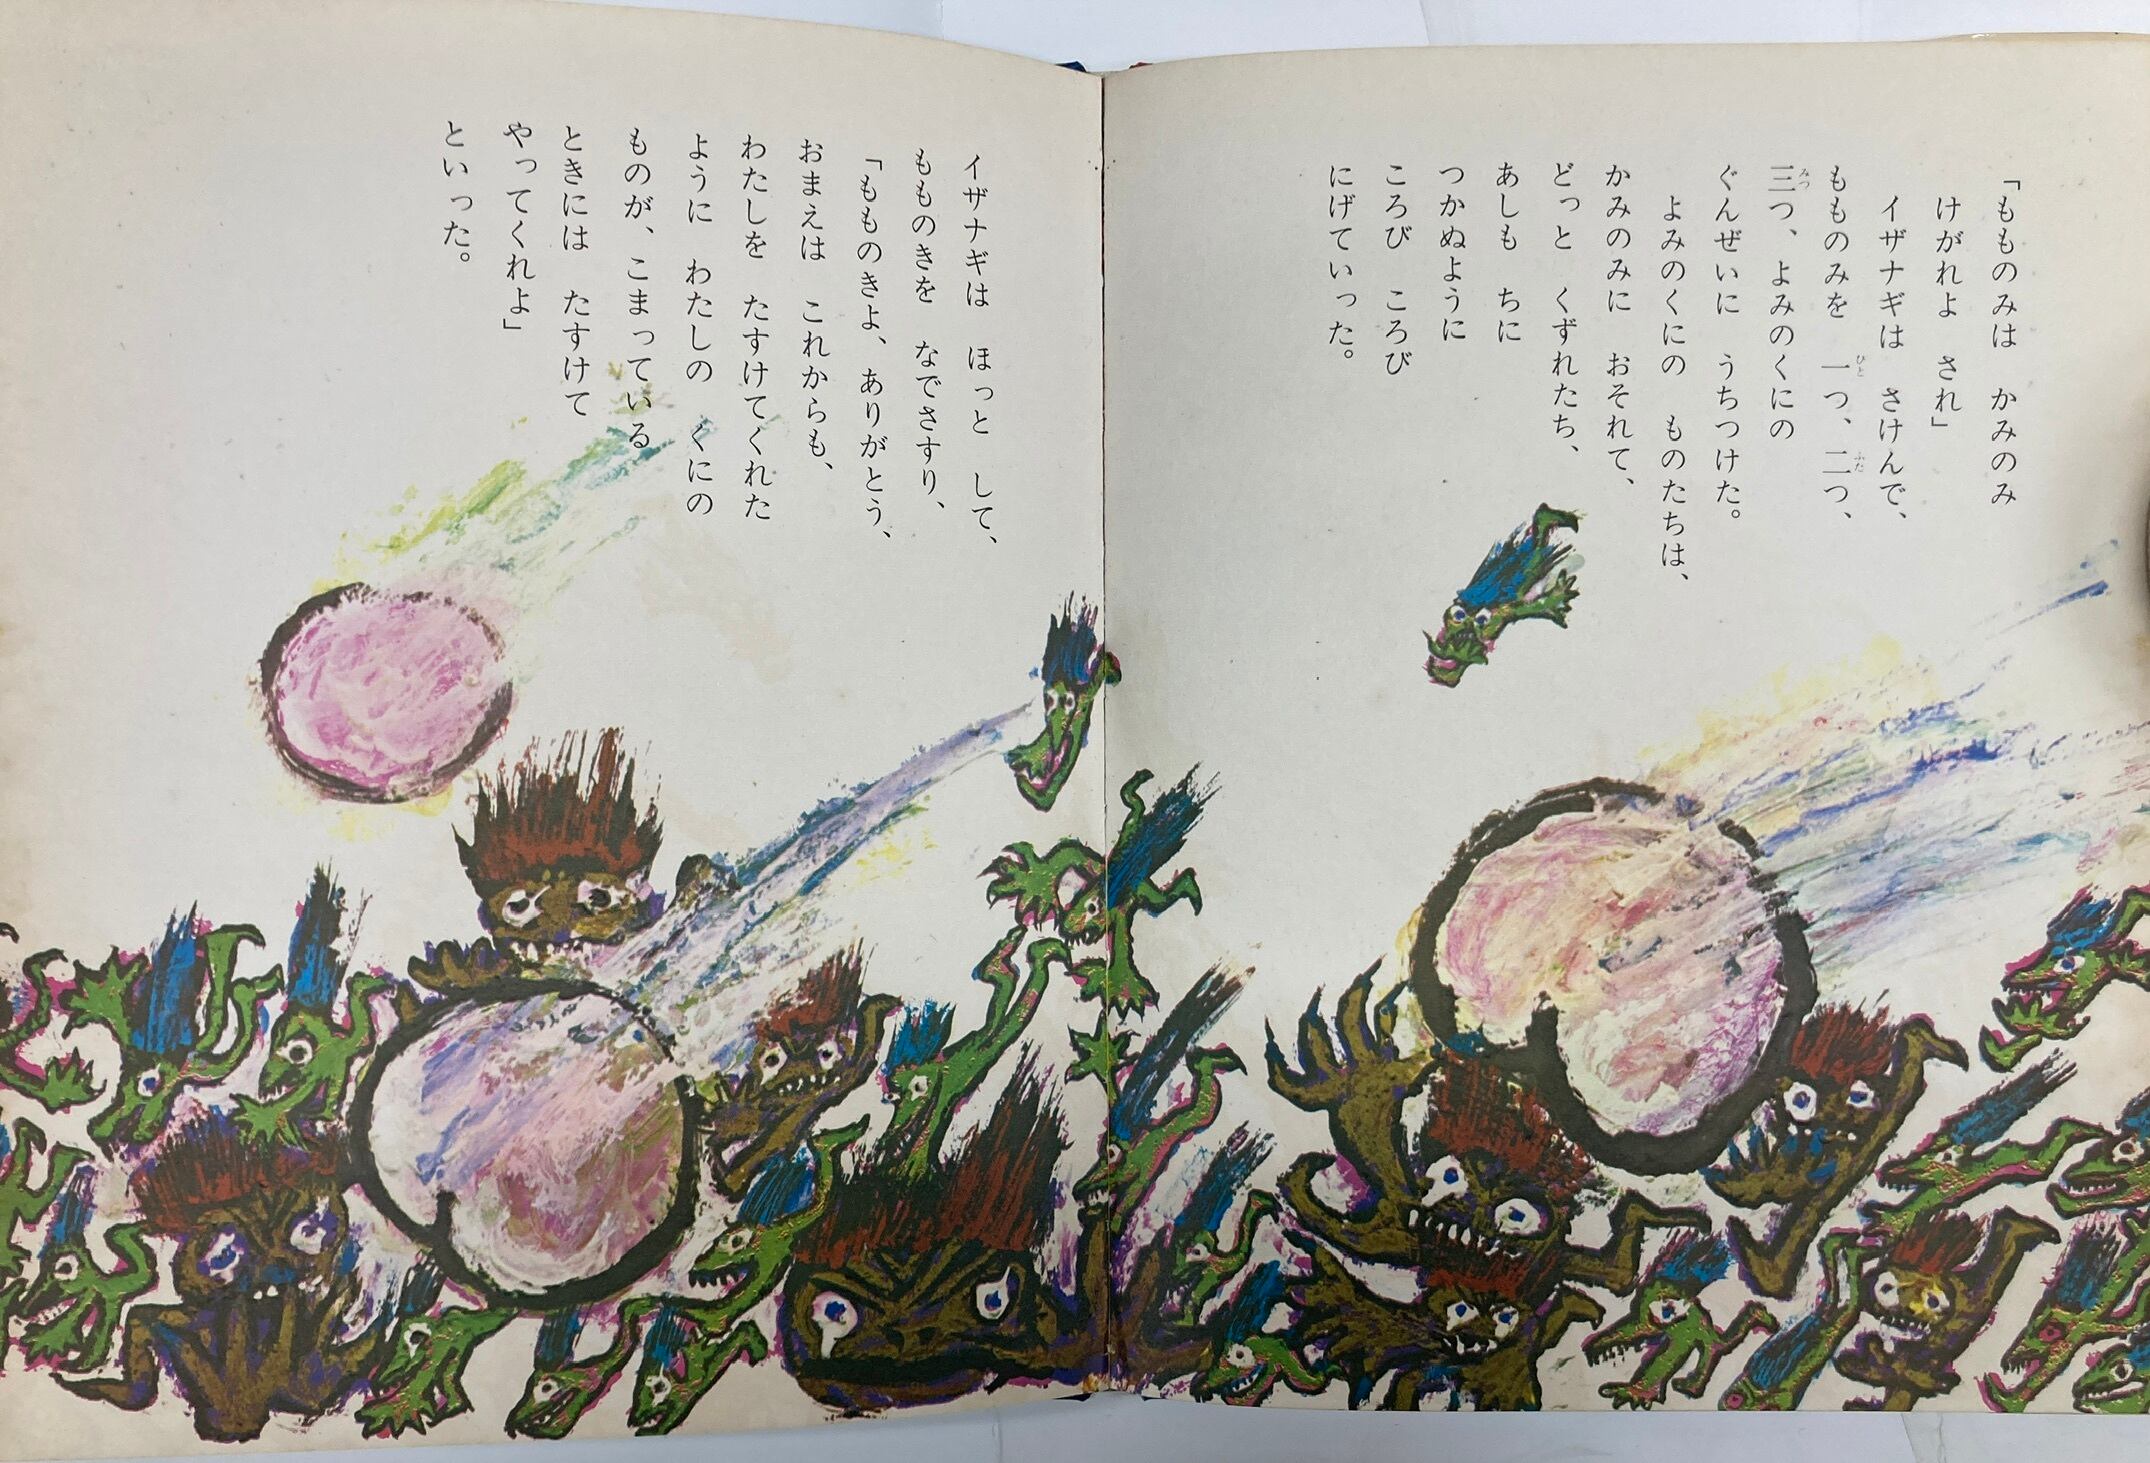 「もものみは　かみのみ
けがれよ　され」
イザナギは　さけんで、
もものみを　一つ、二つ、
三つ、よみのくにの
ぐんぜいに　うちつけた。
よみのくにの　ものたちは、
かみのみに　おそれて、
どっと　くずれたち、
あしも　ちに
つかぬように
ころび　ころび
にげていった。
イザナギは　ほっと　して、
もものきを　なでさすり、
「もものきよ、ありがとう、
おまえは　これからも、
わたしを　たすけてくれた
ように　わたしの　くにの
ものが、こまっている
ときには　たすけて
やってくれよ」
といった。